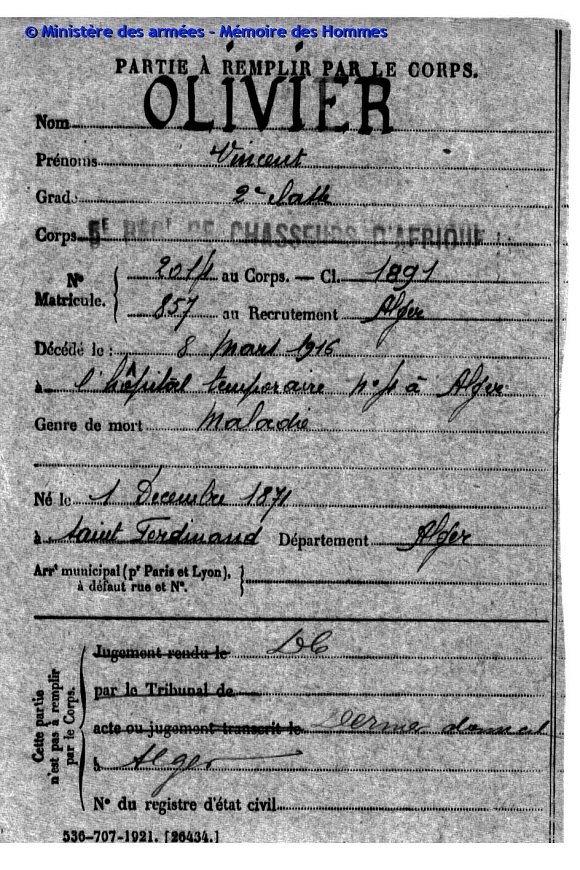 © Ministère des armées - Mémoire des Hommes
PARTIE À REMPLIR PAR LE CORPS.
Nom OLIVIER
Prénoms Vincent
Grade 2e classe
Corps 5E RÉGT DE CHASSEURS D'AFRIQUE
N° Matricule. { au Corps. — Cl. 1891
857 au Recrutement Alger
Décédé le : 8 Mars 1916
à l'hôpital temporaire n° à Alger
Genre de mort Maladie
Né le 1 Decembre 1871
à Saint Ferdinand Département Alger
Arrt municipal (pr Paris et Lyon), }
à défaut rue et N°.
Cette partie n'est pas à remplir par le Corps.
Jugement rendu le
par le Tribunal de
acte ou jugement transcrit le Dernier domicile
à Alger
N° du registre d'état civil
536-707-1921. [26434.]